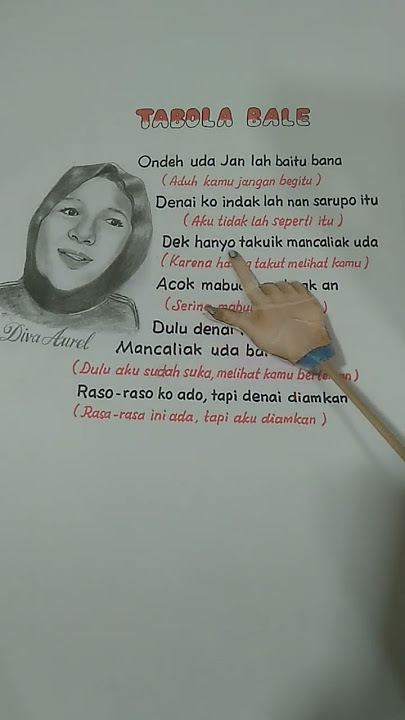 TABOLA BALE
Ondeh uda Jan lah baitu bana
(Aduh kamu jangan begitu)
Denai ko indak lah nan sarupo itu
(Aku tidak lah seperti itu)
Dek hanyo takuik mancaliak uda
(Karena takut melihat kamu)
Acok an
Dulu denai
Mancaliak uda
(Dulu aku sudah suka, melihat kamu
Raso-raso ko ado, tapi denai diamkan
(Rasa-rasa ini ada, tapi aku diamkan)
Diva Aurel